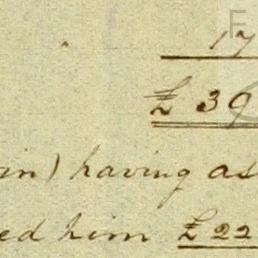 17
£ 39
in) having as
ed him £ 22